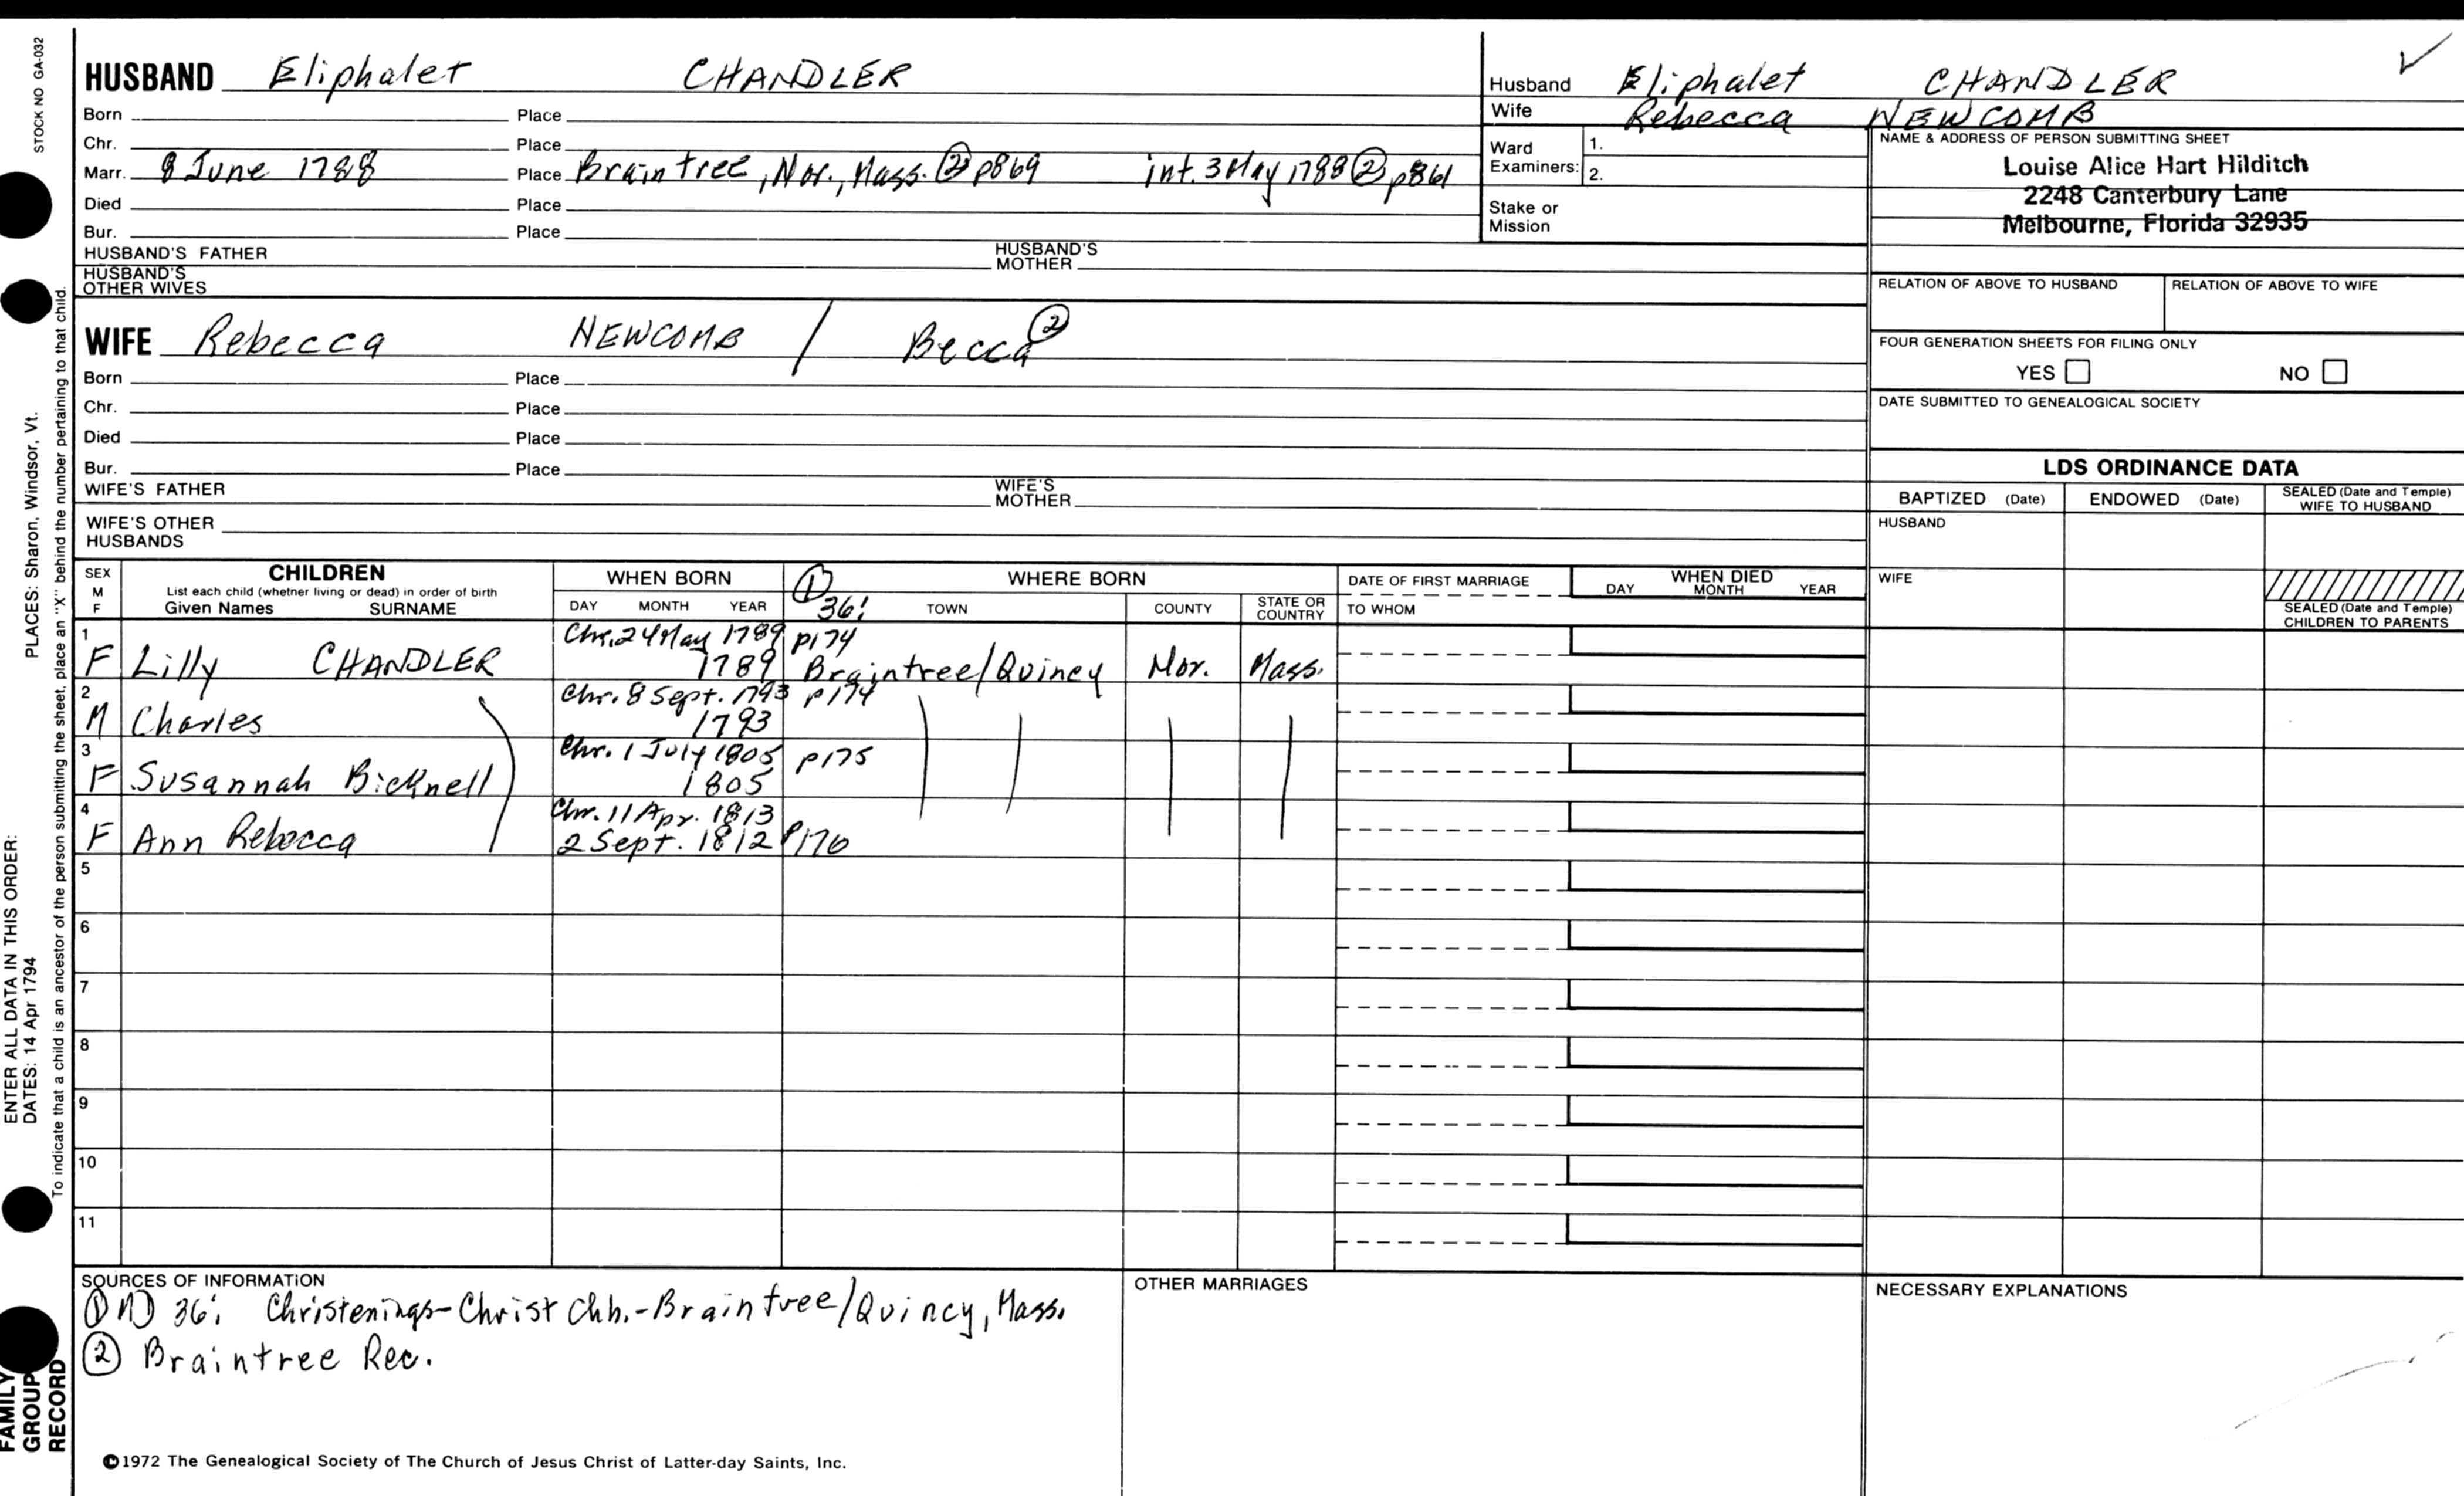 STOCK NO GA-032
PLACES: Sharon, Windsor, Vt.
ENTER ALL DATA IN THIS ORDER:
DATES: 14 Apr 1794
To indicate that a child is an ancestor of the person submitting the sheet, place an "X" behind the number pertaining to that child.
FAMILY
GROUP
RECORD
HUSBAND Eliphalet CHANDLER
Born Place
Chr. Place
Marr. 8 June 1788 Place Braintree, Nor., Mass. ② p869 int. 3 May 1788 ② p861
Died Place
Bur. Place
HUSBAND'S FATHER HUSBAND'S MOTHER
HUSBAND'S
OTHER WIVES
Husband Eliphalet CHANDLER
Wife Rebecca NEWCOMB
Ward
Examiners: 1.
2.
Stake or
Mission
NAME & ADDRESS OF PERSON SUBMITTING SHEET
Louise Alice Hart Hilditch
2248 Canterbury Lane
Melbourne, Florida 32935
RELATION OF ABOVE TO HUSBAND RELATION OF ABOVE TO WIFE
FOUR GENERATION SHEETS FOR FILING ONLY
YES NO
DATE SUBMITTED TO GENEALOGICAL SOCIETY
WIFE Rebecca NEWCOMB / Becca ②
Born Place
Chr. Place
Died Place
Bur. Place
WIFE'S FATHER WIFE'S MOTHER
WIFE'S OTHER
HUSBANDS
LDS ORDINANCE DATA
BAPTIZED (Date) ENDOWED (Date) SEALED (Date and Temple) WIFE TO HUSBAND
HUSBAND
WIFE
SEALED (Date and Temple)
CHILDREN TO PARENTS
SEX
M
F
CHILDREN
List each child (whether living or dead) in order of birth
Given Names SURNAME
WHEN BORN
DAY MONTH YEAR
① 36:
WHERE BORN
TOWN COUNTY STATE OR COUNTRY
DATE OF FIRST MARRIAGE
TO WHOM
WHEN DIED
DAY MONTH YEAR
1 Chr. 24 May 1789 p174
F Lilly CHANDLER 1789 Braintree/Quincy Nor. Mass.
2 Chr. 8 Sept. 1793 p174
M Charles 1793
3 Chr. 1 July 1805 p175
F Susannah Bicknell 1805
4 Chr. 11 Apr. 1813
F Ann Rebecca 2 Sept. 1812 p176
5
6
7
8
9
10
11
SOURCES OF INFORMATION
① 36: Christenings-Christ Chh.-Braintree/Quincy, Mass.
② Braintree Rec.
OTHER MARRIAGES
NECESSARY EXPLANATIONS
©1972 The Genealogical Society of The Church of Jesus Christ of Latter-day Saints, Inc.